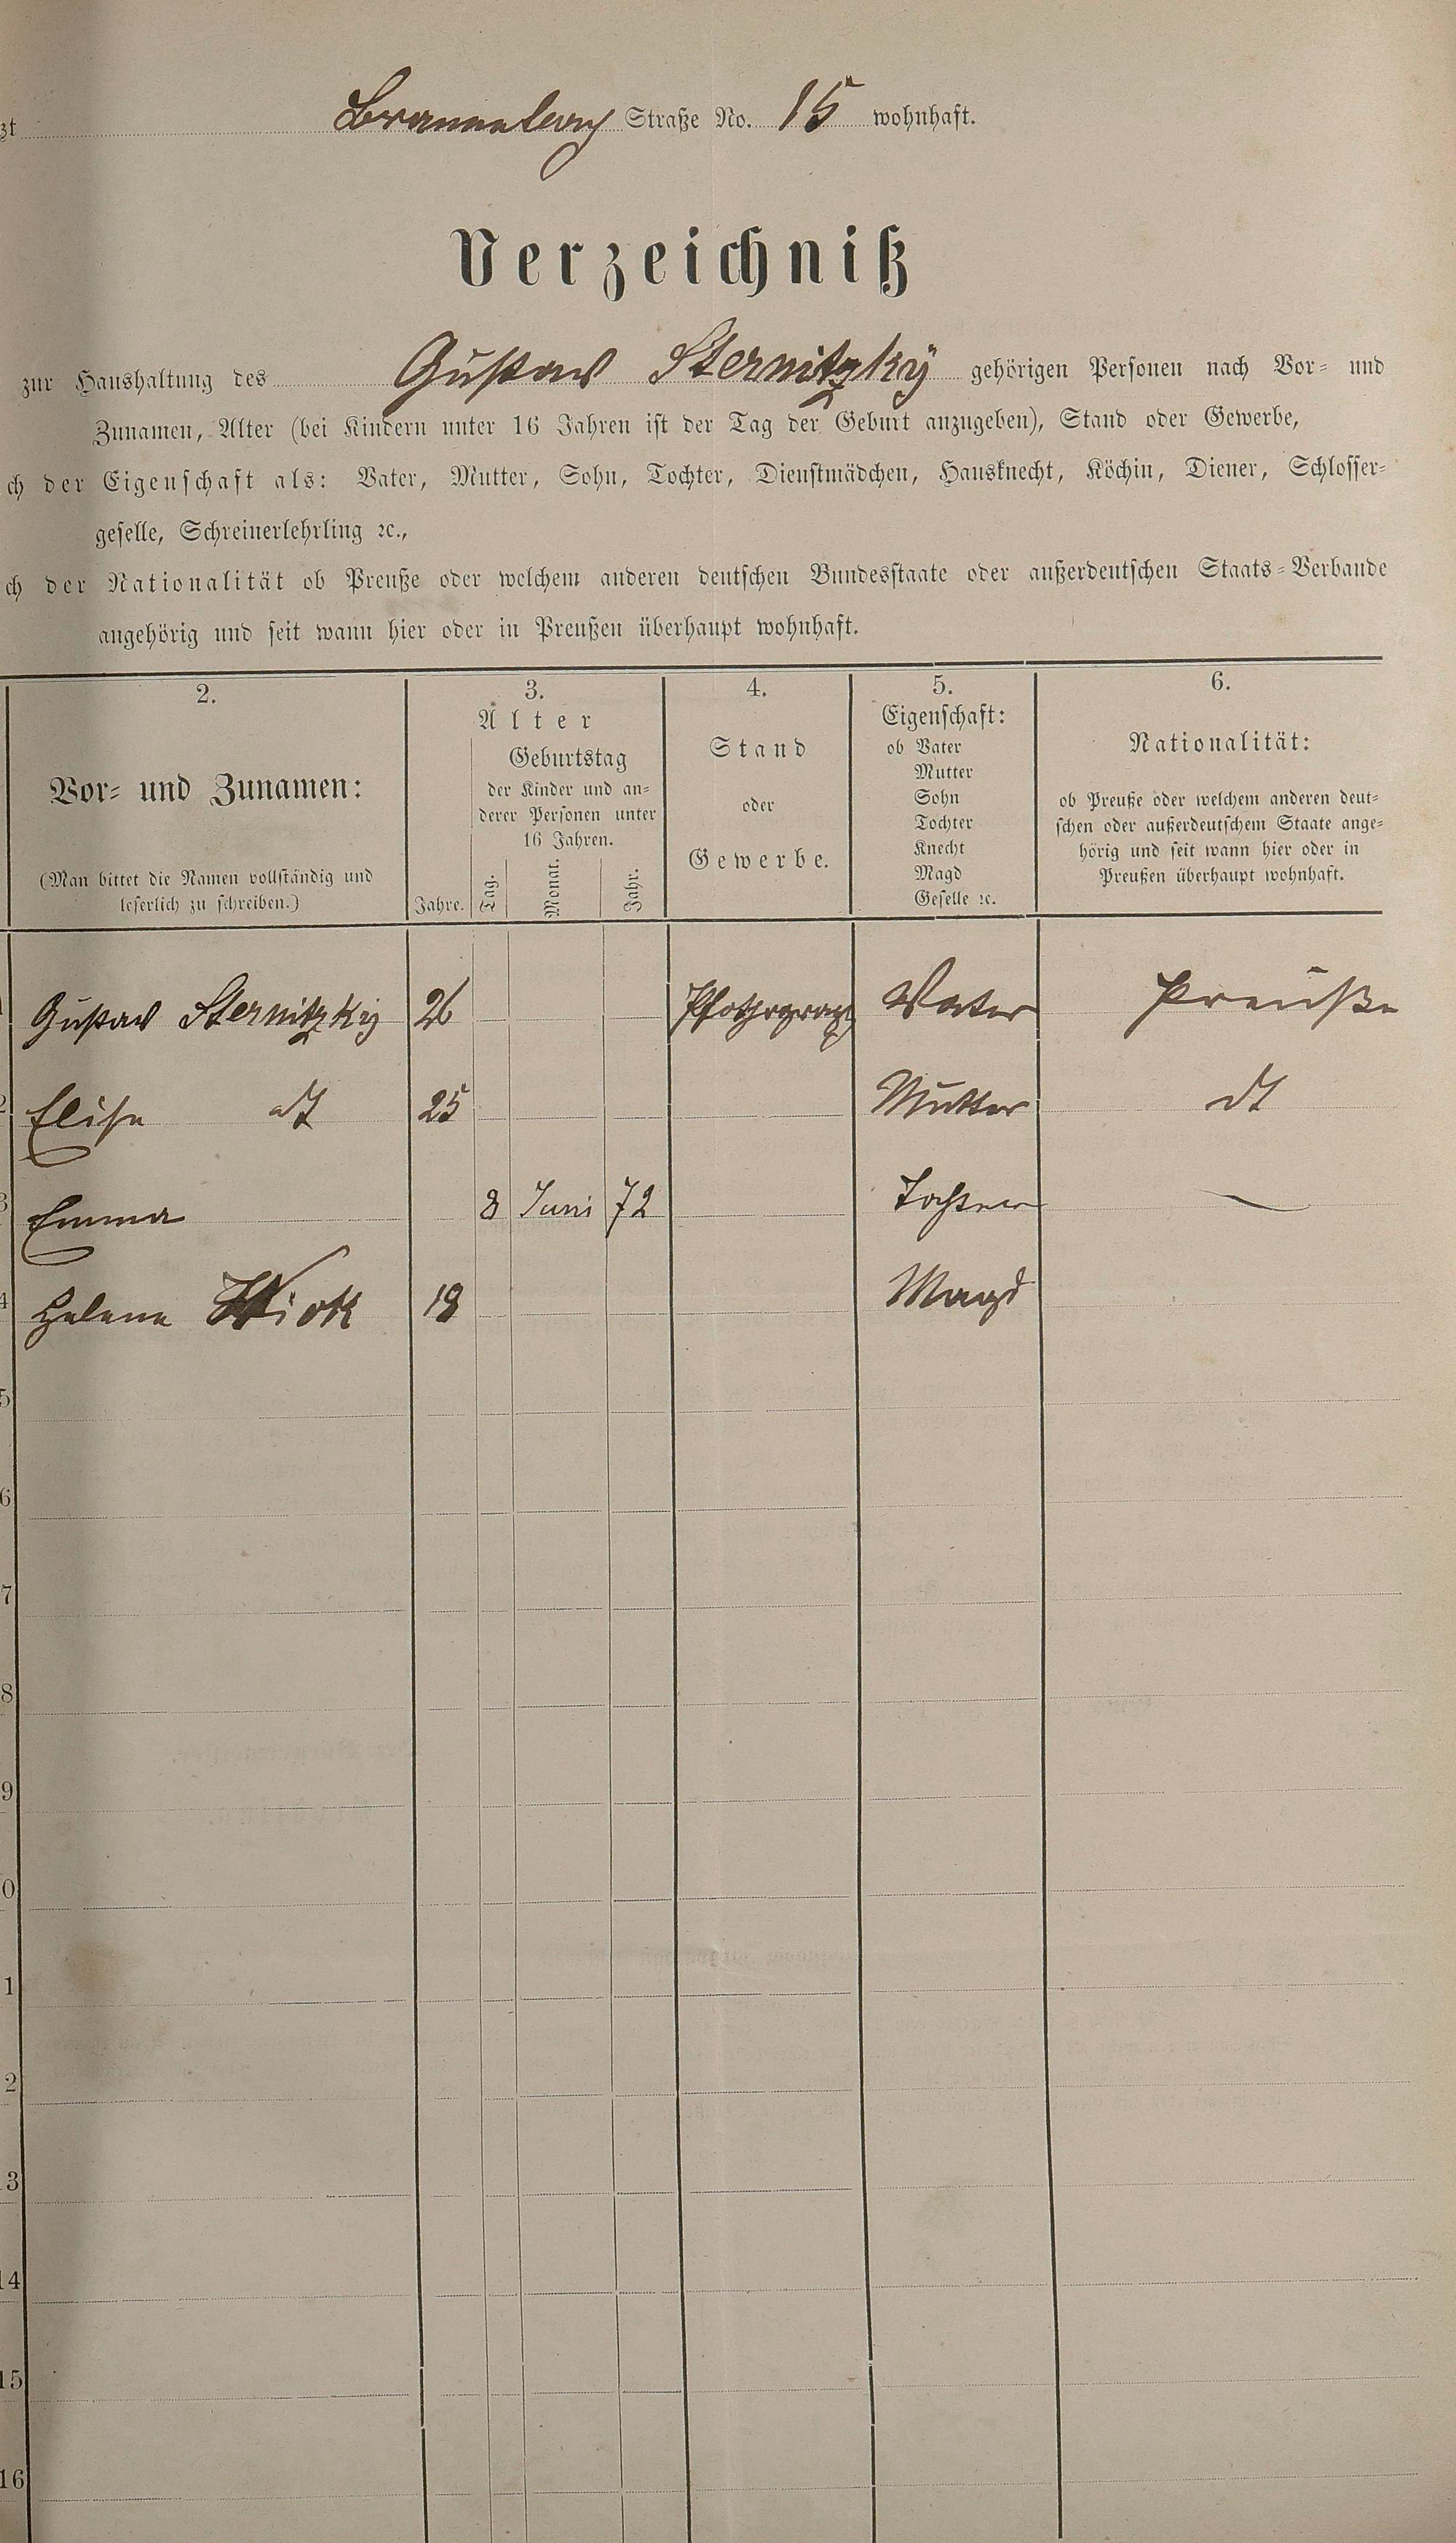 zt Brannenburg Straße No. 15 wohnhaft.
Verzeichniß
zur Haushaltung des Gustav Sternitzky gehörigen Personen nach Vor- und
Zunamen, Alter (bei Kindern unter 16 Jahren ist der Tag der Geburt anzugeben), Stand oder Gewerbe,
ch der Eigenschaft als: Vater, Mutter, Sohn, Tochter, Dienstmädchen, Hausknecht, Köchin, Diener, Schlosser-
geselle, Schreinerlehrling ꝛc.,
ch der Nationalität ob Preuße oder welchem anderen deutschen Bundesstaate oder außerdeutschen Staats-Verbande
angehörig und seit wann hier oder in Preußen überhaupt wohnhaft.
2.
Vor- und Zunamen:
(Man bittet die Namen vollständig und
leserlich zu schreiben.)
3.
Alter
Geburtstag
der Kinder und an-
derer Personen unter
16 Jahren.
Jahre.
Tag.
Monat.
Jahr.
4.
Stand
oder
Gewerbe.
5.
Eigenschaft:
ob Vater
Mutter
Sohn
Tochter
Knecht
Magd
Geselle ꝛc.
6.
Nationalität:
ob Preuße oder welchem anderen deut-
schen oder außerdeutschem Staate ange-
hörig und seit wann hier oder in
Preußen überhaupt wohnhaft.
Gustav Sternitzky 26 Photograph Vater Preuße
2 Elise dt 25 Mutter dt
3 Emma 8 Juni 72 Tochter
4 Helene 18 Magd
5
6
7
8
9
0
1
2
3
14
15
16